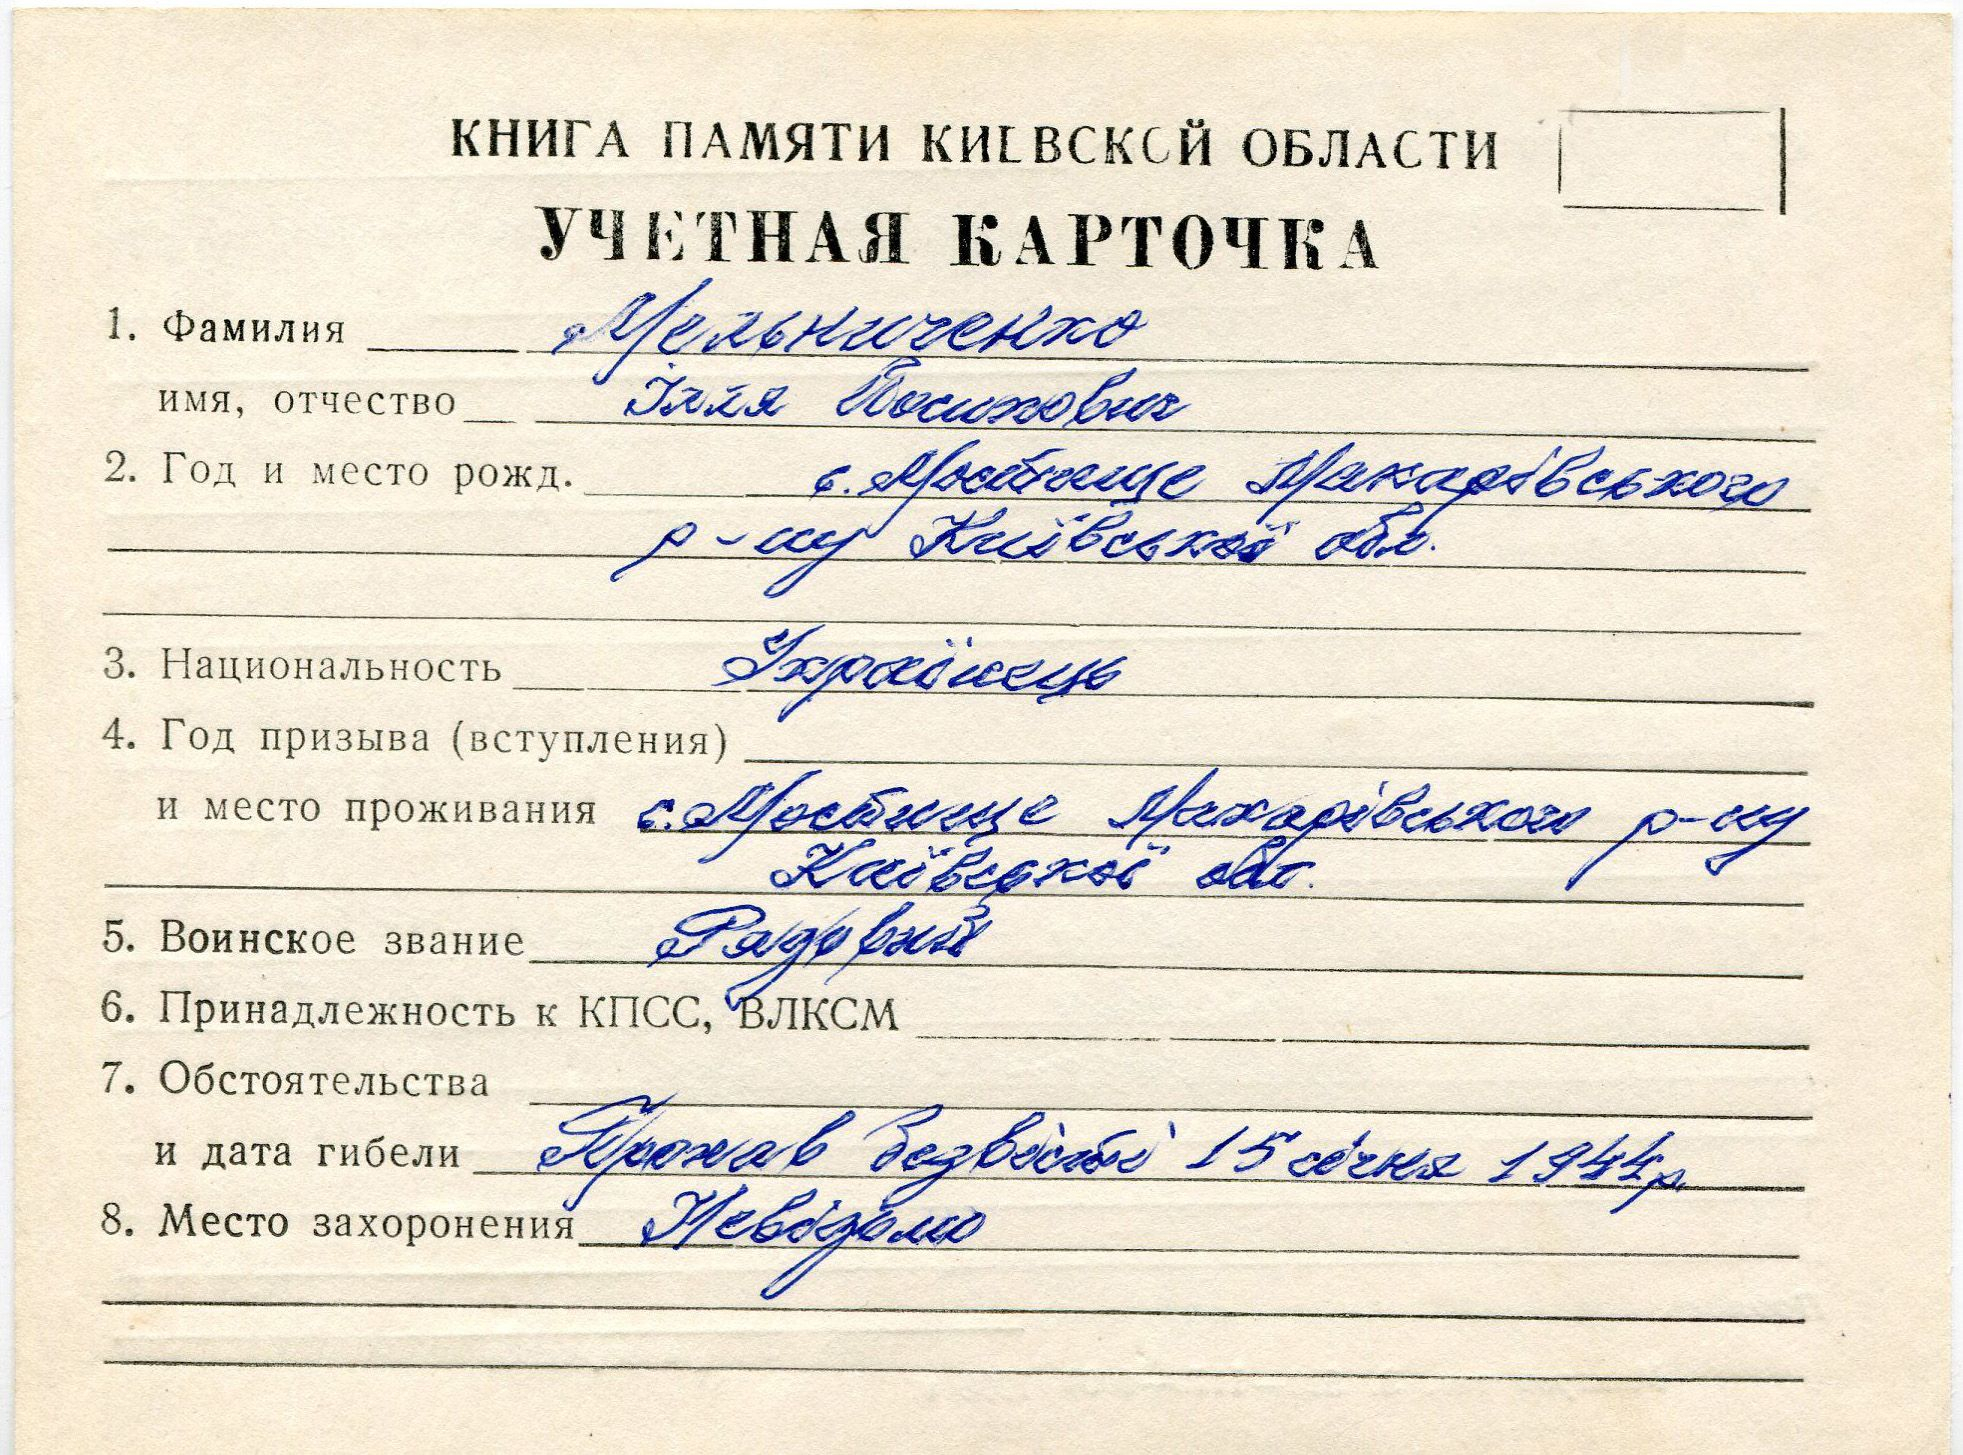 КНИГА ПАМЯТИ КИЕВСКОЙ ОБЛАСТИ
УЧЕТНАЯ КАРТОЧКА
1. Фамилия Мельниченко
имя, отчество Ілля Йосипович
2. Год и место рожд. с. Мостище Макарівського
р-ну Київської обл.
3. Национальность Українець
4. Год призыва (вступления)
и место проживания с. Мостище Макарівського р-ну
Київської обл.
5. Воинское звание Рядовий
6. Принадлежность к КПСС, ВЛКСМ
7. Обстоятельства
и дата гибели Пропав безвісті 15 січня 1944р.
8. Место захоронения Невідомо